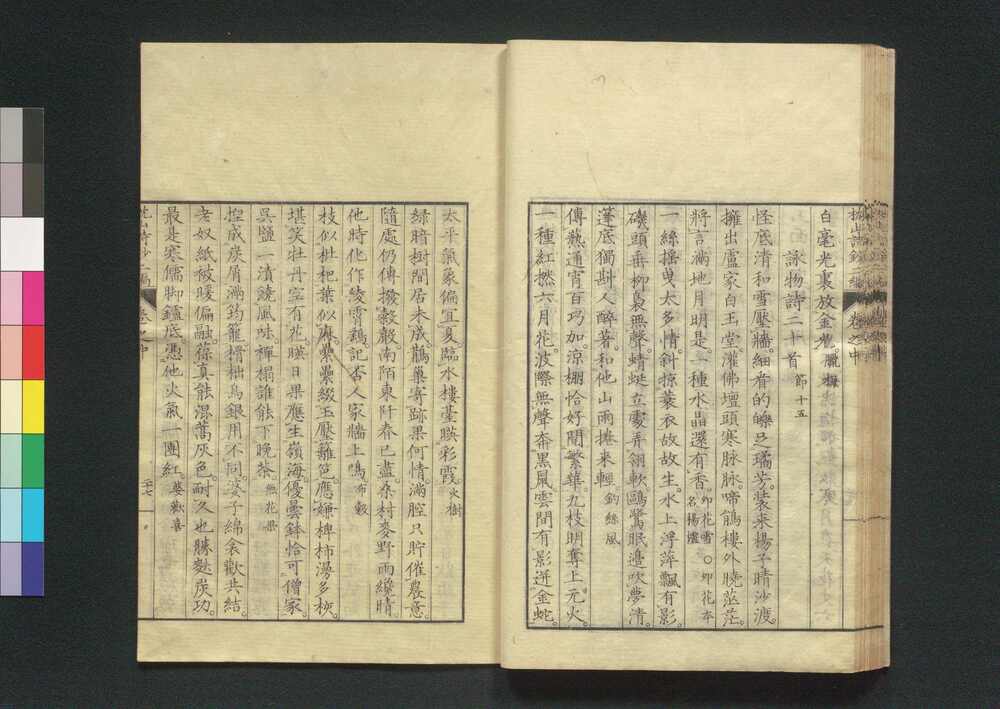 白毫光裏放金光 臘梅
詠物詩二十首 節十五
怪底清和雪壓牆細看的皪只璚芳裝來楊子晴沙渡
擁出盧家白玉堂灌佛壇頭寒脉脉啼鵑樓外曉茫茫
將言滿地月明是一種水晶還有香 卯花雪 ○卯花本名楊櫨
一絲搖曳太多情斜掠蓑衣故故生水上浮萍飄有影
磯頭垂柳裊無聲蜻蜓立處弄翎軟鷗鷺眠邉吹夢清
蓬底獨斟人醉著和他山雨捲來輕 釣絲風
傳爇通宵百巧加涼棚恰好鬧繁華九枝明奪上元火
一種紅撚六月花波際無聲奔黒鼠雲間有影迸金蛇
太平氣象偏宜夏臨水樓臺暎彩霞 火樹
緑暗樹間居未成鵲巢寄跡果何情滿腔只貯催農意
隨處仍傳撥穀聲南陌東阡春已盡桑村麥野雨纔晴
他時化作綾霄鷂記否人家牆上鳴 布穀
枝似枇杷葉似麻纍纍綴玉壓籬笆應嫌椑柿湯多柍
堪笑牡丹空有花暎日果應生嶺海優曇鉢恰可僧家
呉鹽一漬饒風味禪榻誰能下晩茶 無花果
埕成炭屑滿筠籠榾柮烏銀用不同婆子綿衾歡共結
老奴紙被暖偏融葆真能混蒿灰色耐久也勝麩炭功
最是寒儒脚鑪底憑他火氣一團紅 婆歡喜
卷之中
二十七